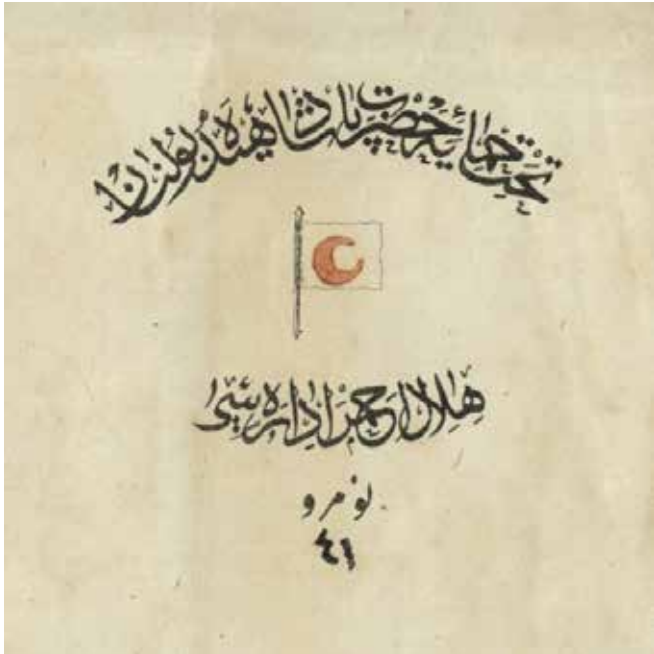 تحت حمايۀ حضرت پادشاهيده بولنان
هلال احمر اداره سی
نومرو
٤١